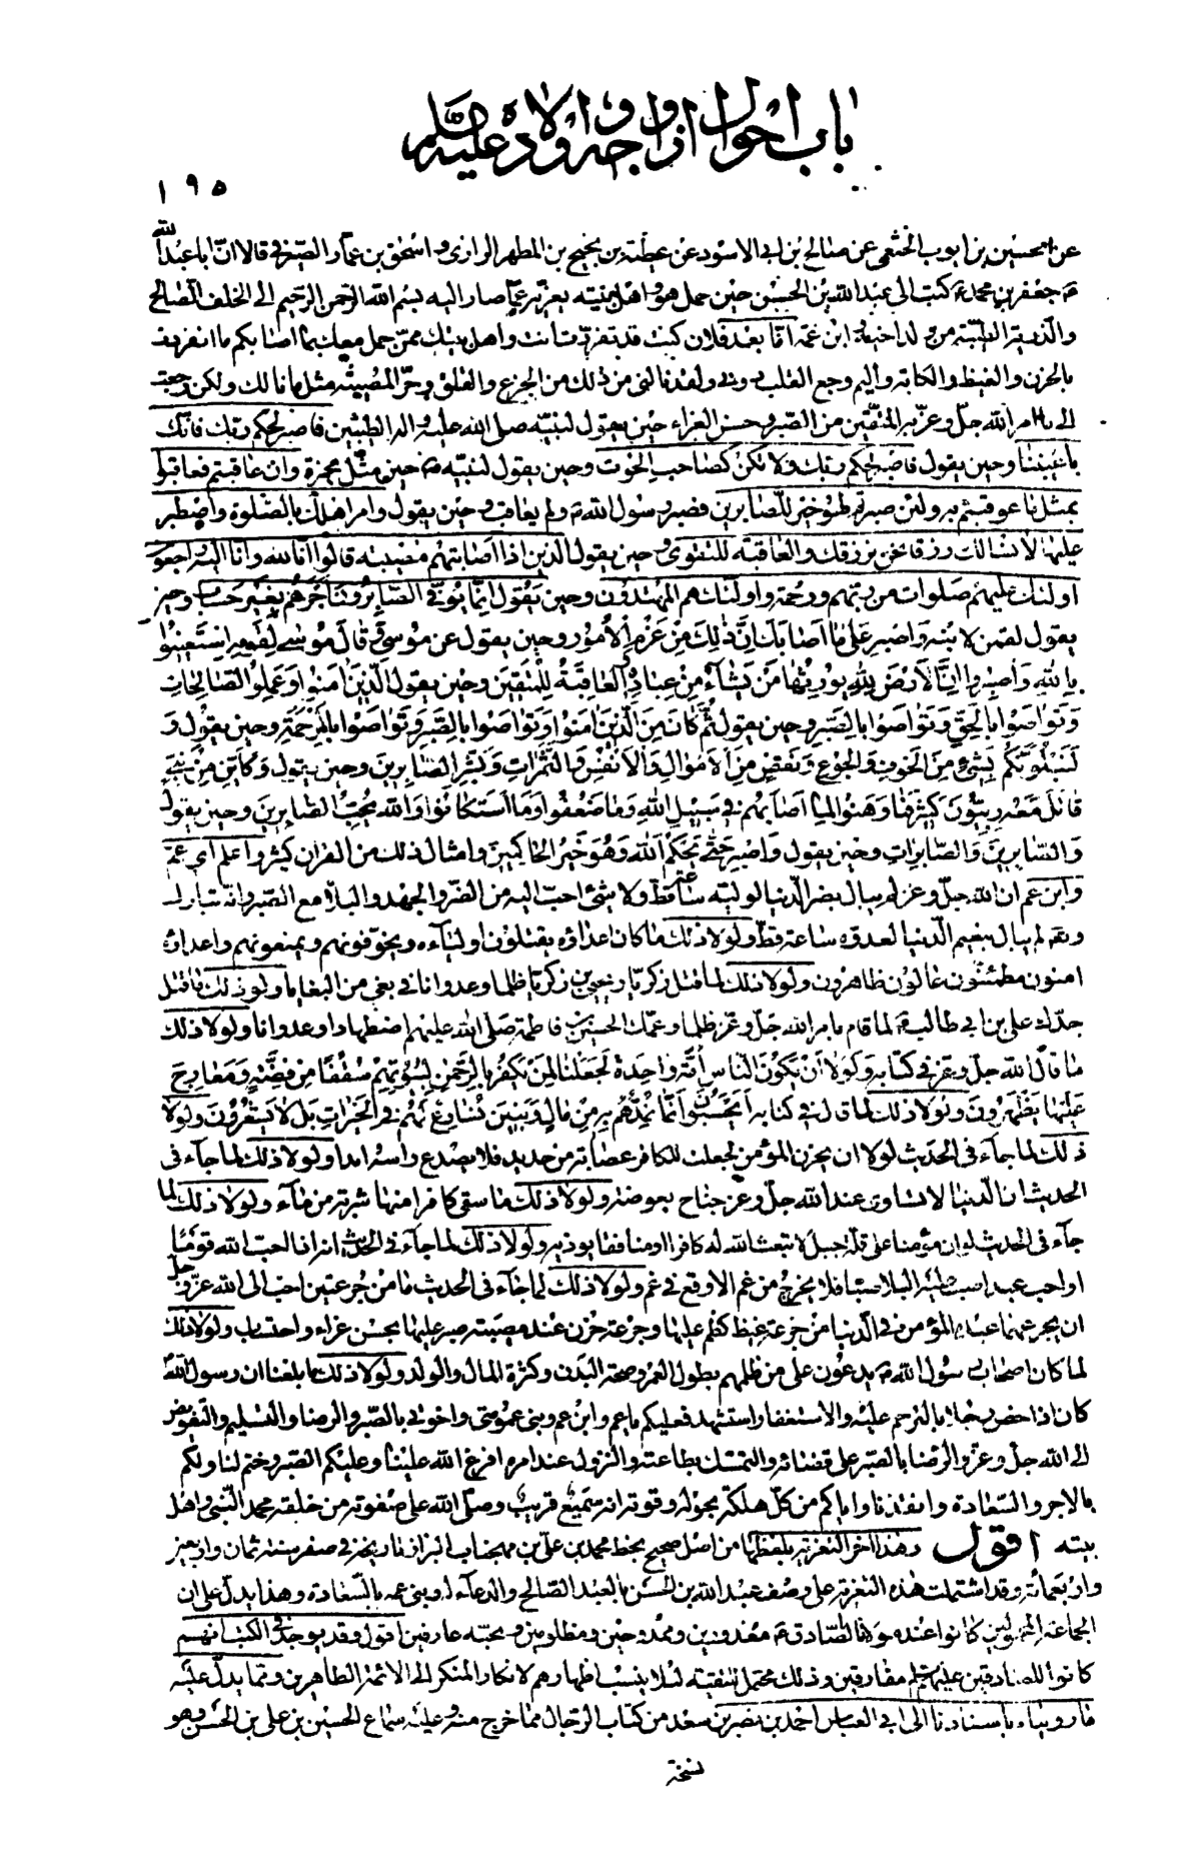 باب احوال ازواجه واولاده عليه السلم
١٩٥
عن الحسين بن ايوب الخثعمي عن صالح بن ابي الاسود عن عطية بن نجيح بن المطهر الرازي واسحق بن عمار الصيرفي قالا ان ابا عبد الله
جعفر بن محمد ع كتب الى عبد الله بن الحسن حين حمل هو واهل بيته يعزيه عما صار اليه بسم الله الرحمن الرحيم الى الخلف الصالح
والذرية الطيبة من ولد اخيه وابن عمه اما بعد فلان كنت قد تفردت انت واهل بيتك ممن حمل معك بما اصابكم ما انفردت
بالحزن والغيظ والكابة واليم وجع القلب دوني ولقد نالني من ذلك من الجزع والقلق وحر المصيبة مثل ما نالك ولكن رجعت
الى ما امر الله جل وعز به المتقين من الصبر وحسن العزاء حين يقول لنبيه صلى الله عليه واله الطيبين فاصبر لحكم ربك فانك
باعيننا وحين يقول فاصبر لحكم ربك ولا تكن كصاحب الحوت وحين يقول لنبيه ص حين مثل بحمزة وان عاقبتم فعاقبوا
بمثل ما عوقبتم به ولئن صبرتم لهو خير للصابرين فصبر رسول الله ص ولم يعاقب وحين يقول وامر اهلك بالصلوة واصطبر
عليها لا نسالك رزقا نحن نرزقك والعاقبة للتقوى وحين يقول الذين اذا اصابتهم مصيبة قالوا انا لله وانا اليه راجعون
اولئك عليهم صلوات من ربهم ورحمة واولئك هم المهتدون وحين يقول انما يوفى الصابرون اجرهم بغير حساب وحين
يقول لقمن لابنه واصبر على ما اصابك ان ذلك من عزم الامور وحين يقول عن موسى وقال موسى لقومه استعينوا
بالله واصبروا ان الارض لله يورثها من يشاء من عباده والعاقبة للمتقين وحين يقول الذين امنوا وعملوا الصالحات
وتواصوا بالحق وتواصوا بالصبر وحين يقول ثم كان من الذين امنوا وتواصوا بالصبر وتواصوا بالمرحمة وحين يقول و
لنبلونكم بشيء من الخوف والجوع ونقص من الاموال والانفس والثمرات وبشر الصابرين وحين يقول وكاين من نبي
قاتل معه ربيون كثير فما وهنوا لما اصابهم في سبيل الله وما ضعفوا وما استكانوا والله يحب الصابرين وحين يقول
والصابرين والصابرات وحين يقول واصبر حتى يحكم الله وهو خير الحاكمين وامثال ذلك من القران كثير واعلم اي عم
وابن عم ان الله جل وعز لم يبال بضر الدنيا لوليه ساعة قط ولا شيء احب اليه من الضر والجهد والبلاء مع الصبر وانه تبارك
وتع لم يبال بنعيم الدنيا لعدوه ساعة قط ولولا ذلك ما كان اعداؤه يقتلون اولياءه ويخوفونهم ويمنعونهم واعداؤه
امنون مطمئنون عالون ظاهرون ولولا ذلك لما قتل زكريا ويحيى بن زكريا ظلما وعدوانا في بغي من البغايا ولولا ذلك ما قتل
جدك علي بن ابي طالب ع لما قام بامر الله جل وعز ظلما وعمك الحسين بن فاطمة صلى الله عليهم اضطهادا وعدوانا ولولا ذلك
ما قال الله جل وعز في كتابه ولولا ان يكون الناس امة واحدة لجعلنا لمن يكفر بالرحمن لبيوتهم سقفا من فضة ومعارج
عليها يظهرون ولولا ذلك لما قال في كتابه ايحسبون انما نمدهم به من مال وبنين نسارع لهم في الخيرات بل لا يشعرون ولولا
ذلك لما جاء في الحديث لولا ان يحزن المؤمن لجعلت للكافر عصابة من حديد فلا يصدع راسه ابدا ولولا ذلك لما جاء في
الحديث ان الدنيا لا تساوي عند الله جل وعز جناح بعوضة ولولا ذلك ما سقى كافرا منها شربة من ماء ولولا ذلك لما
جاء في الحديث لو ان مؤمنا على قلة جبل لابتعث الله له كافرا او منافقا يوذيه ولولا ذلك لما جاء في الحديث انه اذا احب الله قوما
او احب عبدا صب عليه البلاء صبا فلا يخرج من غم الا وقع في غم ولولا ذلك لما جاء في الحديث ما من جرعتين احب الى الله عز وجل
ان يجرعهما عبده المؤمن في الدنيا من جرعة غيظ كظم عليها وجرعة حزن عند مصيبة صبر عليها بحسن عزاء واحتساب ولولا ذلك
لما كان اصحاب رسول الله ص يدعون على من ظلمهم بطول العمر وصحة البدن وكثرة المال والولد ولولا ذلك ما بلغنا ان رسول الله
كان اذا خص رجلا بالترحم عليه والاستغفار استشهد فعليكم يا عم وابن عم وبني عمومتي واخوتي بالصبر والرضا والتسليم والتفويض
الى الله جل وعز والرضا بالصبر على قضائه والتمسك بطاعته والنزول عند امره افرغ الله علينا وعليكم الصبر وختم لنا ولكم
بالاجر والسعادة وانقذنا واياكم من كل هلكة بحوله وقوته انه سميع قريب وصلى الله على صفوته من خلقه محمد النبي واهل
بيته اقول وهذا اخر التعزية بلفظها من اصل صحيح بخط محمد بن علي بن مهجناب البزاز تاريخه في صفر سنة ثمان واربعين
واربعمائة وقد اشتملت هذه التعزية على وصف عبد الله بن الحسن بالعبد الصالح والدعاء له وبني عمه بالسعادة وهذا يدل على ان
الجماعة المحمولين كانوا عند مولانا الصادق ع معذورين وممدوحين ومظلومين وبحبه عارفين اقول وقد يوجد في الكتب انهم
كانوا للصادقين عليهم السلم مفارقين وذلك محتمل للتقية لئلا ينسب اظهارهم لانكار المنكر الى الائمة الطاهرين ومما يدل عليه
ما رويناه باسنادنا الى ابي العباس احمد بن نصر بن سعد من كتاب الرجال مما خرج منه وعليه سماع الحسين بن علي بن الحسن وهو
نسخة